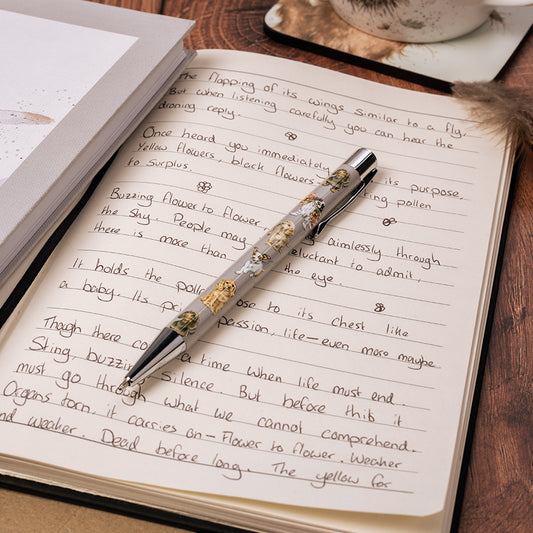 The flapping of its wings similar to a fly.
But when listening carefully you can hear the
droning reply.
Once heard you immediately its purpose.
Yellow flowers, black flowers ting pollen
to surplus.
Buzzing flower to flower, aimlessly through
the sky. People may reluctant to admit,
there is more than the eye.
It holds the poll ose to its chest like
a baby. Its pri passion, life-even more maybe.
Though there co a time when life must end.
Sting, buzzi silence. But before this it
must go through what we cannot comprehend.
Organs torn, it carries on - flower to flower. Weaker
nd weaker. Dead before long. The yellow for